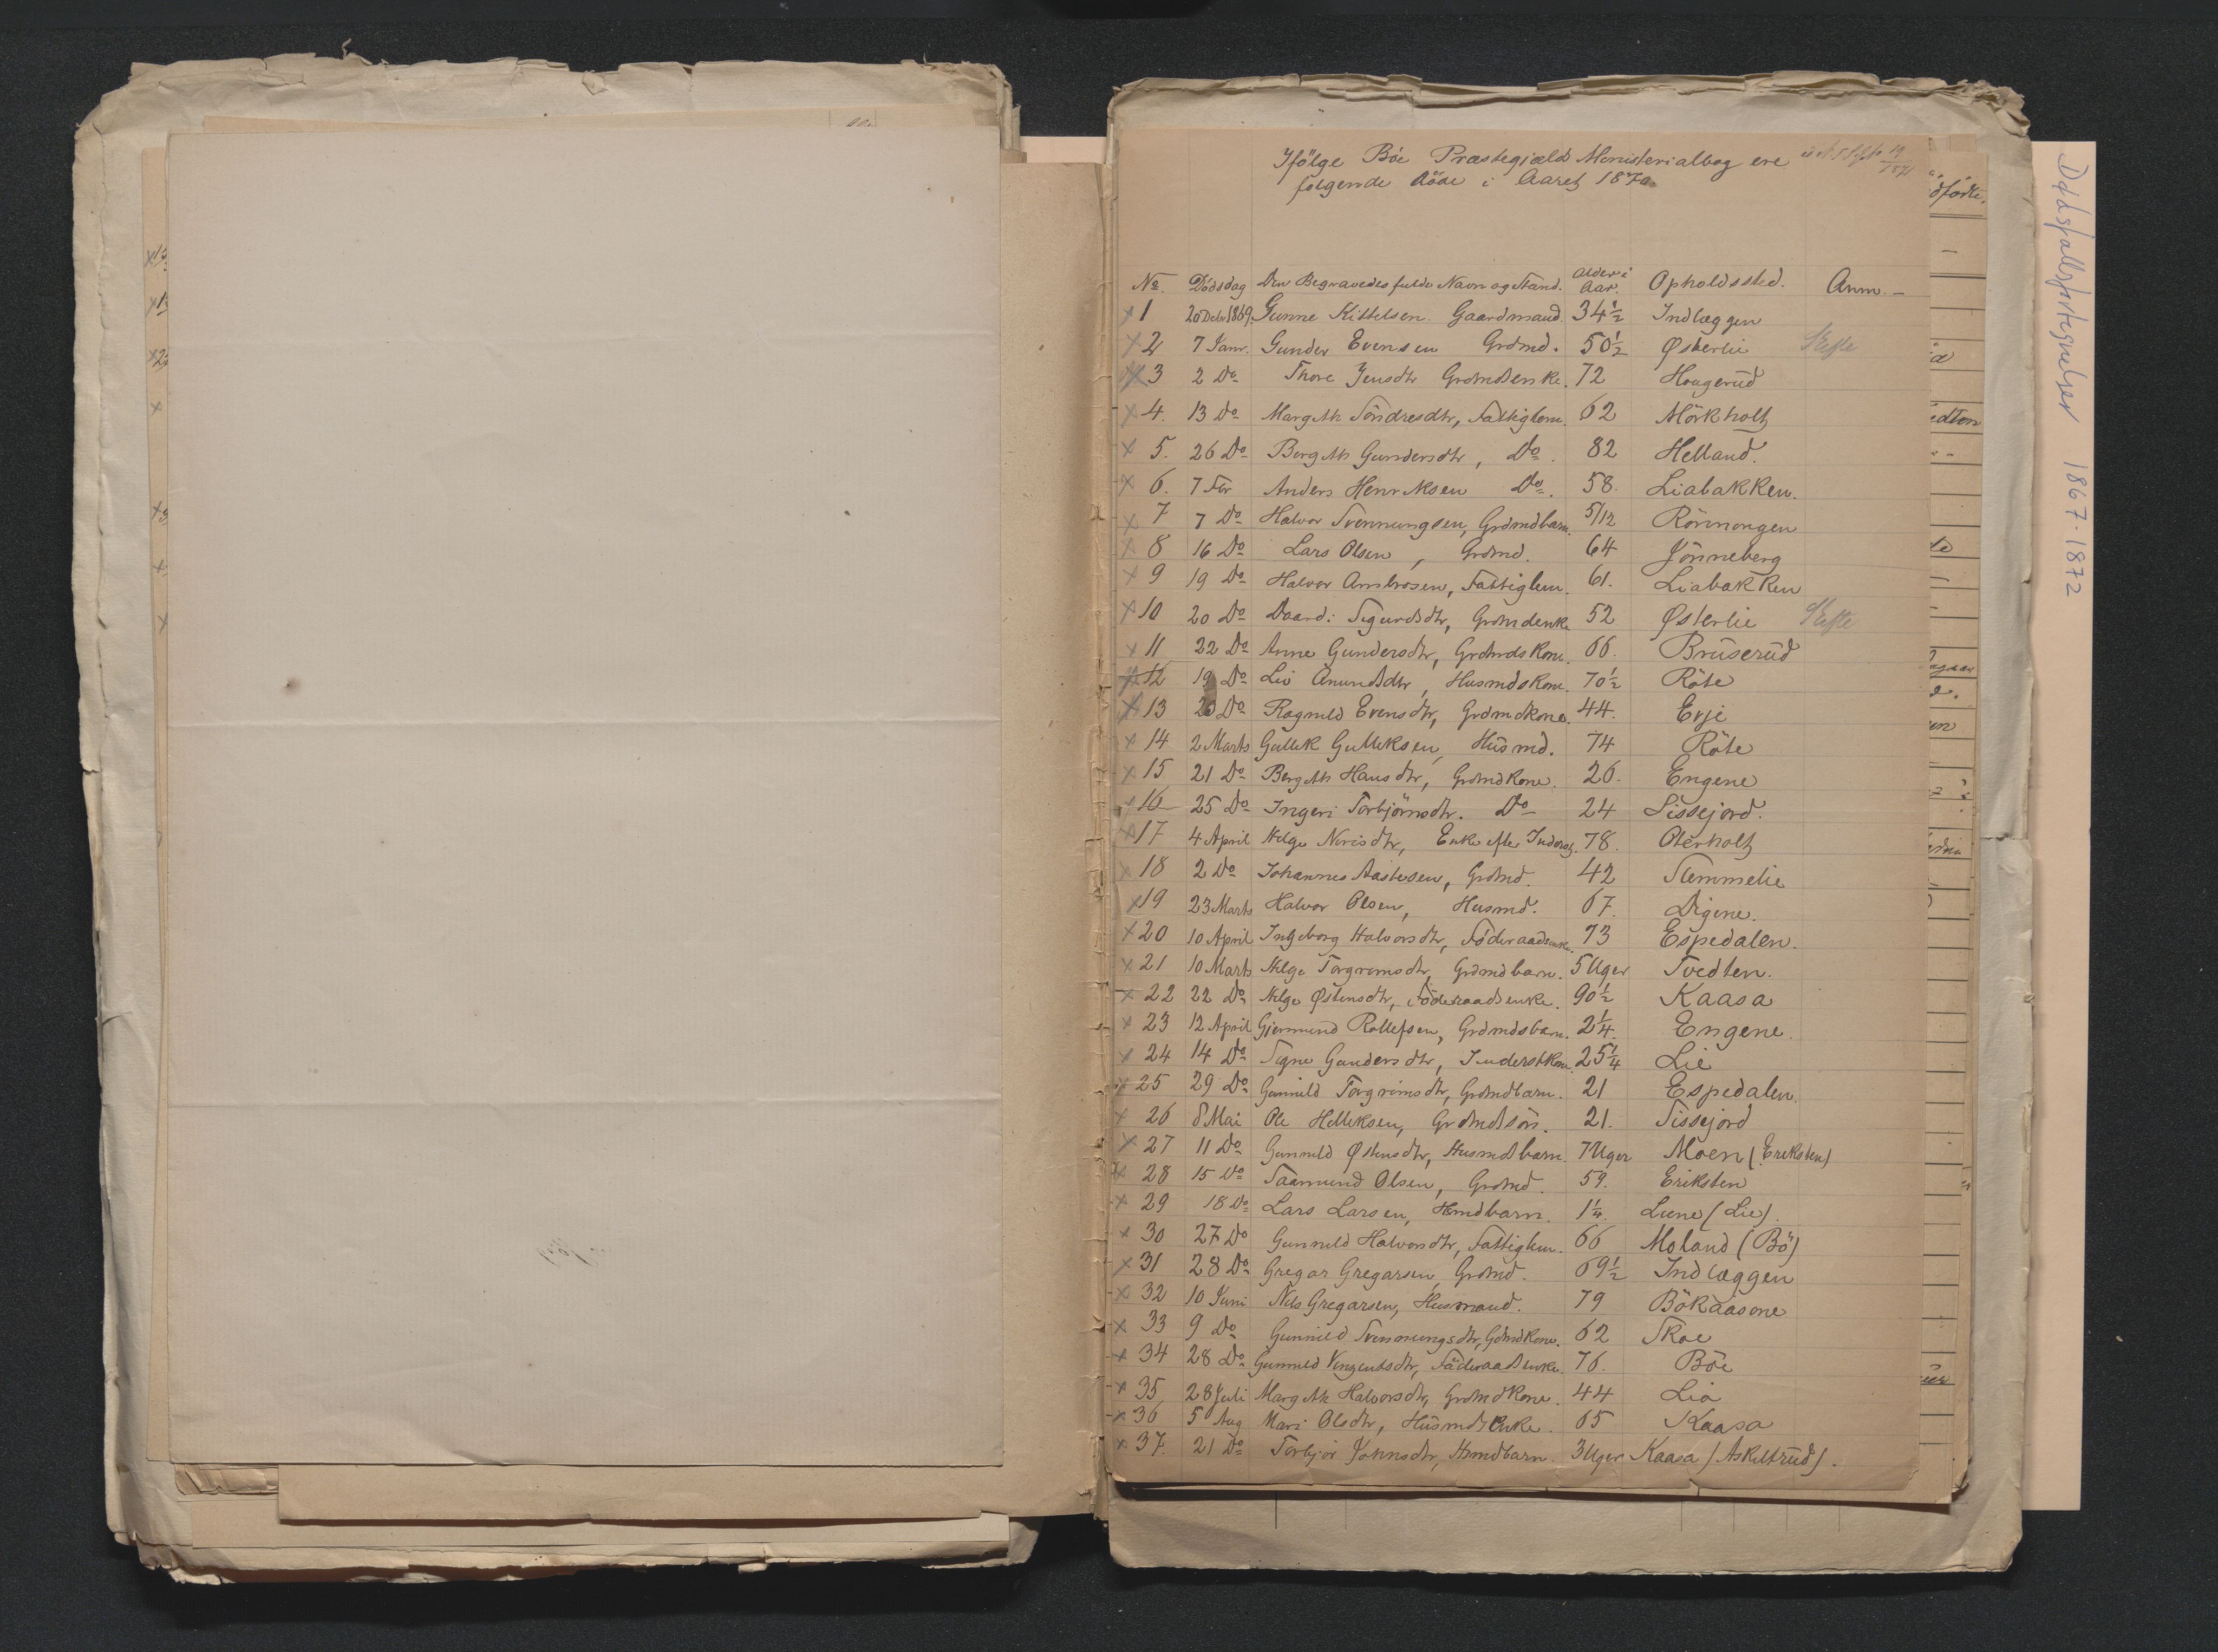 Ifölge Böe Præstegjæld Ministerialbog ere
følgende döde i Aaret 1870.
19/1871
No. Dödsdag Den Begravedes fulde Navn og Stand. Alder i Aar. Opholdssted. Anm. -
1 20 Debr 1869. Gunne Kittelsen Gaardmand. 34½ Indlæggen
2 7 Janr. Gunder Evensen Grdmd. 50½ Østerlie
3 2 Do Thore Jensdtr Grdmdsenke. 72 Haugerud
4. 13 Do Margith Söndresdtr, Fattiglem. 62 Mörkholt
5. 26 Do Bergith Gundersdtr, Do. 82 Helland.
6. 7 Fbr Anders Henriksen Do. 58. Liabakken.
7 7 Do Halvor Svennungsen, Grdmdbarn. 5/12 Rönningen
8 16 Do Lars Olsen, Grdmd. 64 Jönneberg
9 19 Do Halvor Ambrosen, Fattiglem. 61. Liabakken
10 20 Do Daard: Sigurdsdtr, Grdmdenke 52 Østerlie
11 22 Do Anne Gundersdtr, Grdmdskone. 66. Brüserud
12 19 Do Liv Anundsdtr, Husmdskone. 70½ Röte
13 20 Do Ragnild Evensdtr, Grdmdkone. 44. Evje
14 2 Marts Gullik Gulliksen, Husmd. 74 Röte
15 21 Do Bergith Hansdtr, Grdmdkone. 26. Engene
16 25 Do Ingeri Torbjörnsdtr. Do 24 Sissejord.
17 4 April Helge Nerisdtr, Enke efter Inderst. 78. Oterholt
18 2 Do Johannes Aastesen, Grdmd. 42 Slemmelie
19 23 Marts Halvor Olsen, Husmd. 67. Digene.
20 10 April Ingeborg Halvorsdtr, Föderaadsenke. 73 Espedalen.
21 10 Marts Helge Torgrimsdtr, Grdmdbarn. 5 Uger Tvedten.
22 22 Do Helge Østensdtr, Föderaadsenke. 90½ Kaasa
23 12 April Gjermund Rollefsen, Grdmdsbarn. 2¼. Engene.
24 14 Do Signe Gundersdtr, Inderstkone. 25¼ Lie
25 29 Do Gunnild Torgrimsdtr, Grdmdbarn. 21 Espedalen.
26 8 Mai Ole Helliksen, Grdmdsön. 21. Sissejord
27 11 Do Gunnild Østensdtr, Husmdbarn. 7 Uger Moen (Eriksten)
28 15 Do Saamund Olsen, Grdmd. 59. Eriksten
29 18 Do Lars Larsen, Hsmdbarn. 1¼. Lune (Lie).
30 27 Do Gunnild Halvorsdtr, Fattiglem. 66 Moland (Bö)
31 28 Do Gregar Gregarsen, Grdmd. 69½ Indlæggen
32 10 Juni Nils Gregarsen, Husmand. 79 Bökaasene
33 9 Do Gunnild Svennungsdtr, Grdmdkone. 62 Skoe
34 28 Do Gunnild Vingendsdtr, Föderaadsenke. 76. Böe
35 28 Juli Margith Halvorsdtr, Grdmdkone. 44 Lia
36 5 Aug Mari Olsdtr, Husmdsenke. 65 Kaasa
37. 21 Do Torbjör Johnsdtr, Hsmdbarn. 3 Uger Kaasa (Askiltrud).
Dødsfallsfortegnelser 1867-1872